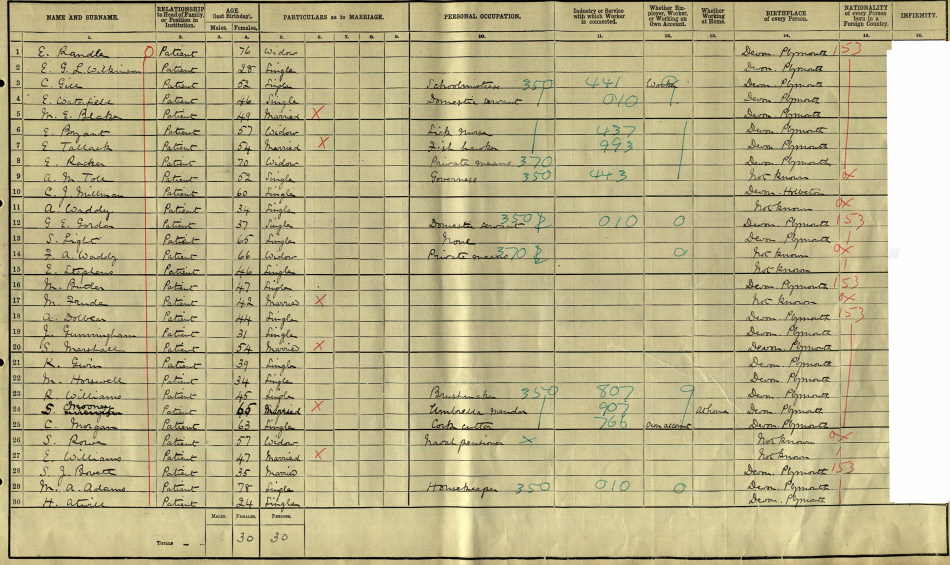 NAME AND SURNAME. RELATIONSHIP to Head of Family, or Position in Institution. AGE (last Birthday). PARTICULARS as to MARRIAGE. PERSONAL OCCUPATION. Industry or Service with which Worker is connected. Whether Employer, Worker, or Working on Own Account. Whether Working at Home. BIRTHPLACE of every Person. NATIONALITY of every Person born in a Foreign Country. INFIRMITY.
Males. Females.
1. 2. 3. 4. 5. 6. 7. 8. 9. 10. 11. 12. 13. 14. 15. 16.
1 E. Randle Patient 76 Widow Devon. Plymouth 153
2 E. G. L. Wilkinson Patient 28 Single Devon. Plymouth
3 C. Gill Patient 52 Single Schoolmistress 350 441 Worker Devon. Plymouth
4 E. Waterfield Patient 46 Single Domestic servant 010 Devon. Plymouth
5 M. E. Blake Patient 49 Married X Devon. Plymouth
6 E. Bryant Patient 57 Widow Sick Nurse 437 Devon. Plymouth
7 E. Tallack Patient 54 Married X Fish hawker 993 Devon. Plymouth
8 E. Patient 70 Widow Private means 370 Devon. Plymouth
9 A. M. Patient 52 Single Governess 350 443 Not known ox
10 C. J. Millman Patient 60 Single Devon. Holbeton
11 A. Waddy Patient 34 Single Not known ox
12 G. E. Gordon Patient 37 Single Domestic servant 350 010 0 Devon. Plymouth 153
13 S. Light Patient 65 Single None Devon. Plymouth
14 F. A. Waddy Patient 66 Widow Private means 370 0 Not known ox
15 E. Stephens Patient 46 Single Not known
16 M. Butler Patient 47 Single Devon. Plymouth 153
17 M. Patient 42 Married X Not known ox
18 A. Dolbear Patient 44 Single Devon. Plymouth 153
19 J. Gunningham Patient 31 Single Devon. Plymouth
20 S. Marshall Patient 54 Married X Devon. Plymouth
21 K. Patient 39 Single Devon. Plymouth
22 M. Horswell Patient 34 Single Devon. Plymouth
23 R. Williams Patient 45 Single Brushmaker 350 807 9 Devon. Plymouth
24 S. Mooney Patient 65 Married X Umbrella mender 907 at home Devon. Plymouth
25 C. Morgan Patient 63 Single Cork cutter 766 own account Devon. Plymouth
26 S. Rowe Patient 57 Widow Naval pensioner X Not known ox
27 E. Williams Patient 47 Married X Not known
28 S. J. Bovett Patient 35 Married Devon. Plymouth 153
29 M. A. Adams Patient 78 Single Housekeeper 350 010 0 Devon. Plymouth
30 H. Atwill Patient 24 Single Devon. Plymouth
MALES. FEMALES. PERSONS.
TOTALS 30 30